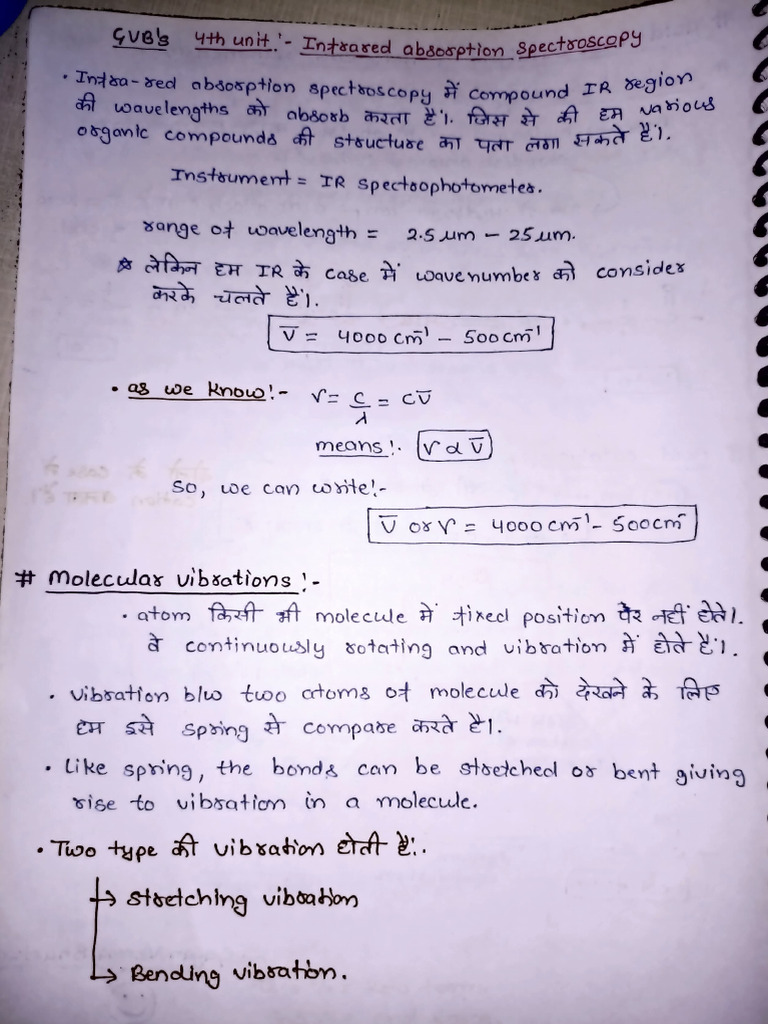 GVB's 4th unit:- Infrared absorption spectroscopy
• Infra-red absorption spectroscopy में compound IR region
की wavelengths को absorb करता है।. जिस से की हम various
organic compounds की structure का पता लगा सकते है।.
Instrument = IR spectrophotometer.
range of wavelength = 2.5 μm – 25 μm.
☆ लेकिन हम IR के case में wavenumber को consider
करके चलते हैं।.
ν̅ = 4000 cm⁻¹ – 500 cm⁻¹
• as we know:- ν = c/λ = cν̅
means:. ν ∝ ν̅
So, we can write:-
ν̅ or ν = 4000 cm⁻¹ - 500 cm⁻
# Molecular vibrations :-
• atom किसी भी molecule में fixed position पर नहीं होते।.
वे continuously rotating and vibration में होते हैं।.
• vibration b/w two atoms of molecule को देखने के लिए
हम इसे spring से compare करते है।.
• Like spring, the bonds can be stretched or bent giving
rise to vibration in a molecule.
• Two type की vibration होती हैं:.
→ stretching vibration
→ Bending vibration.